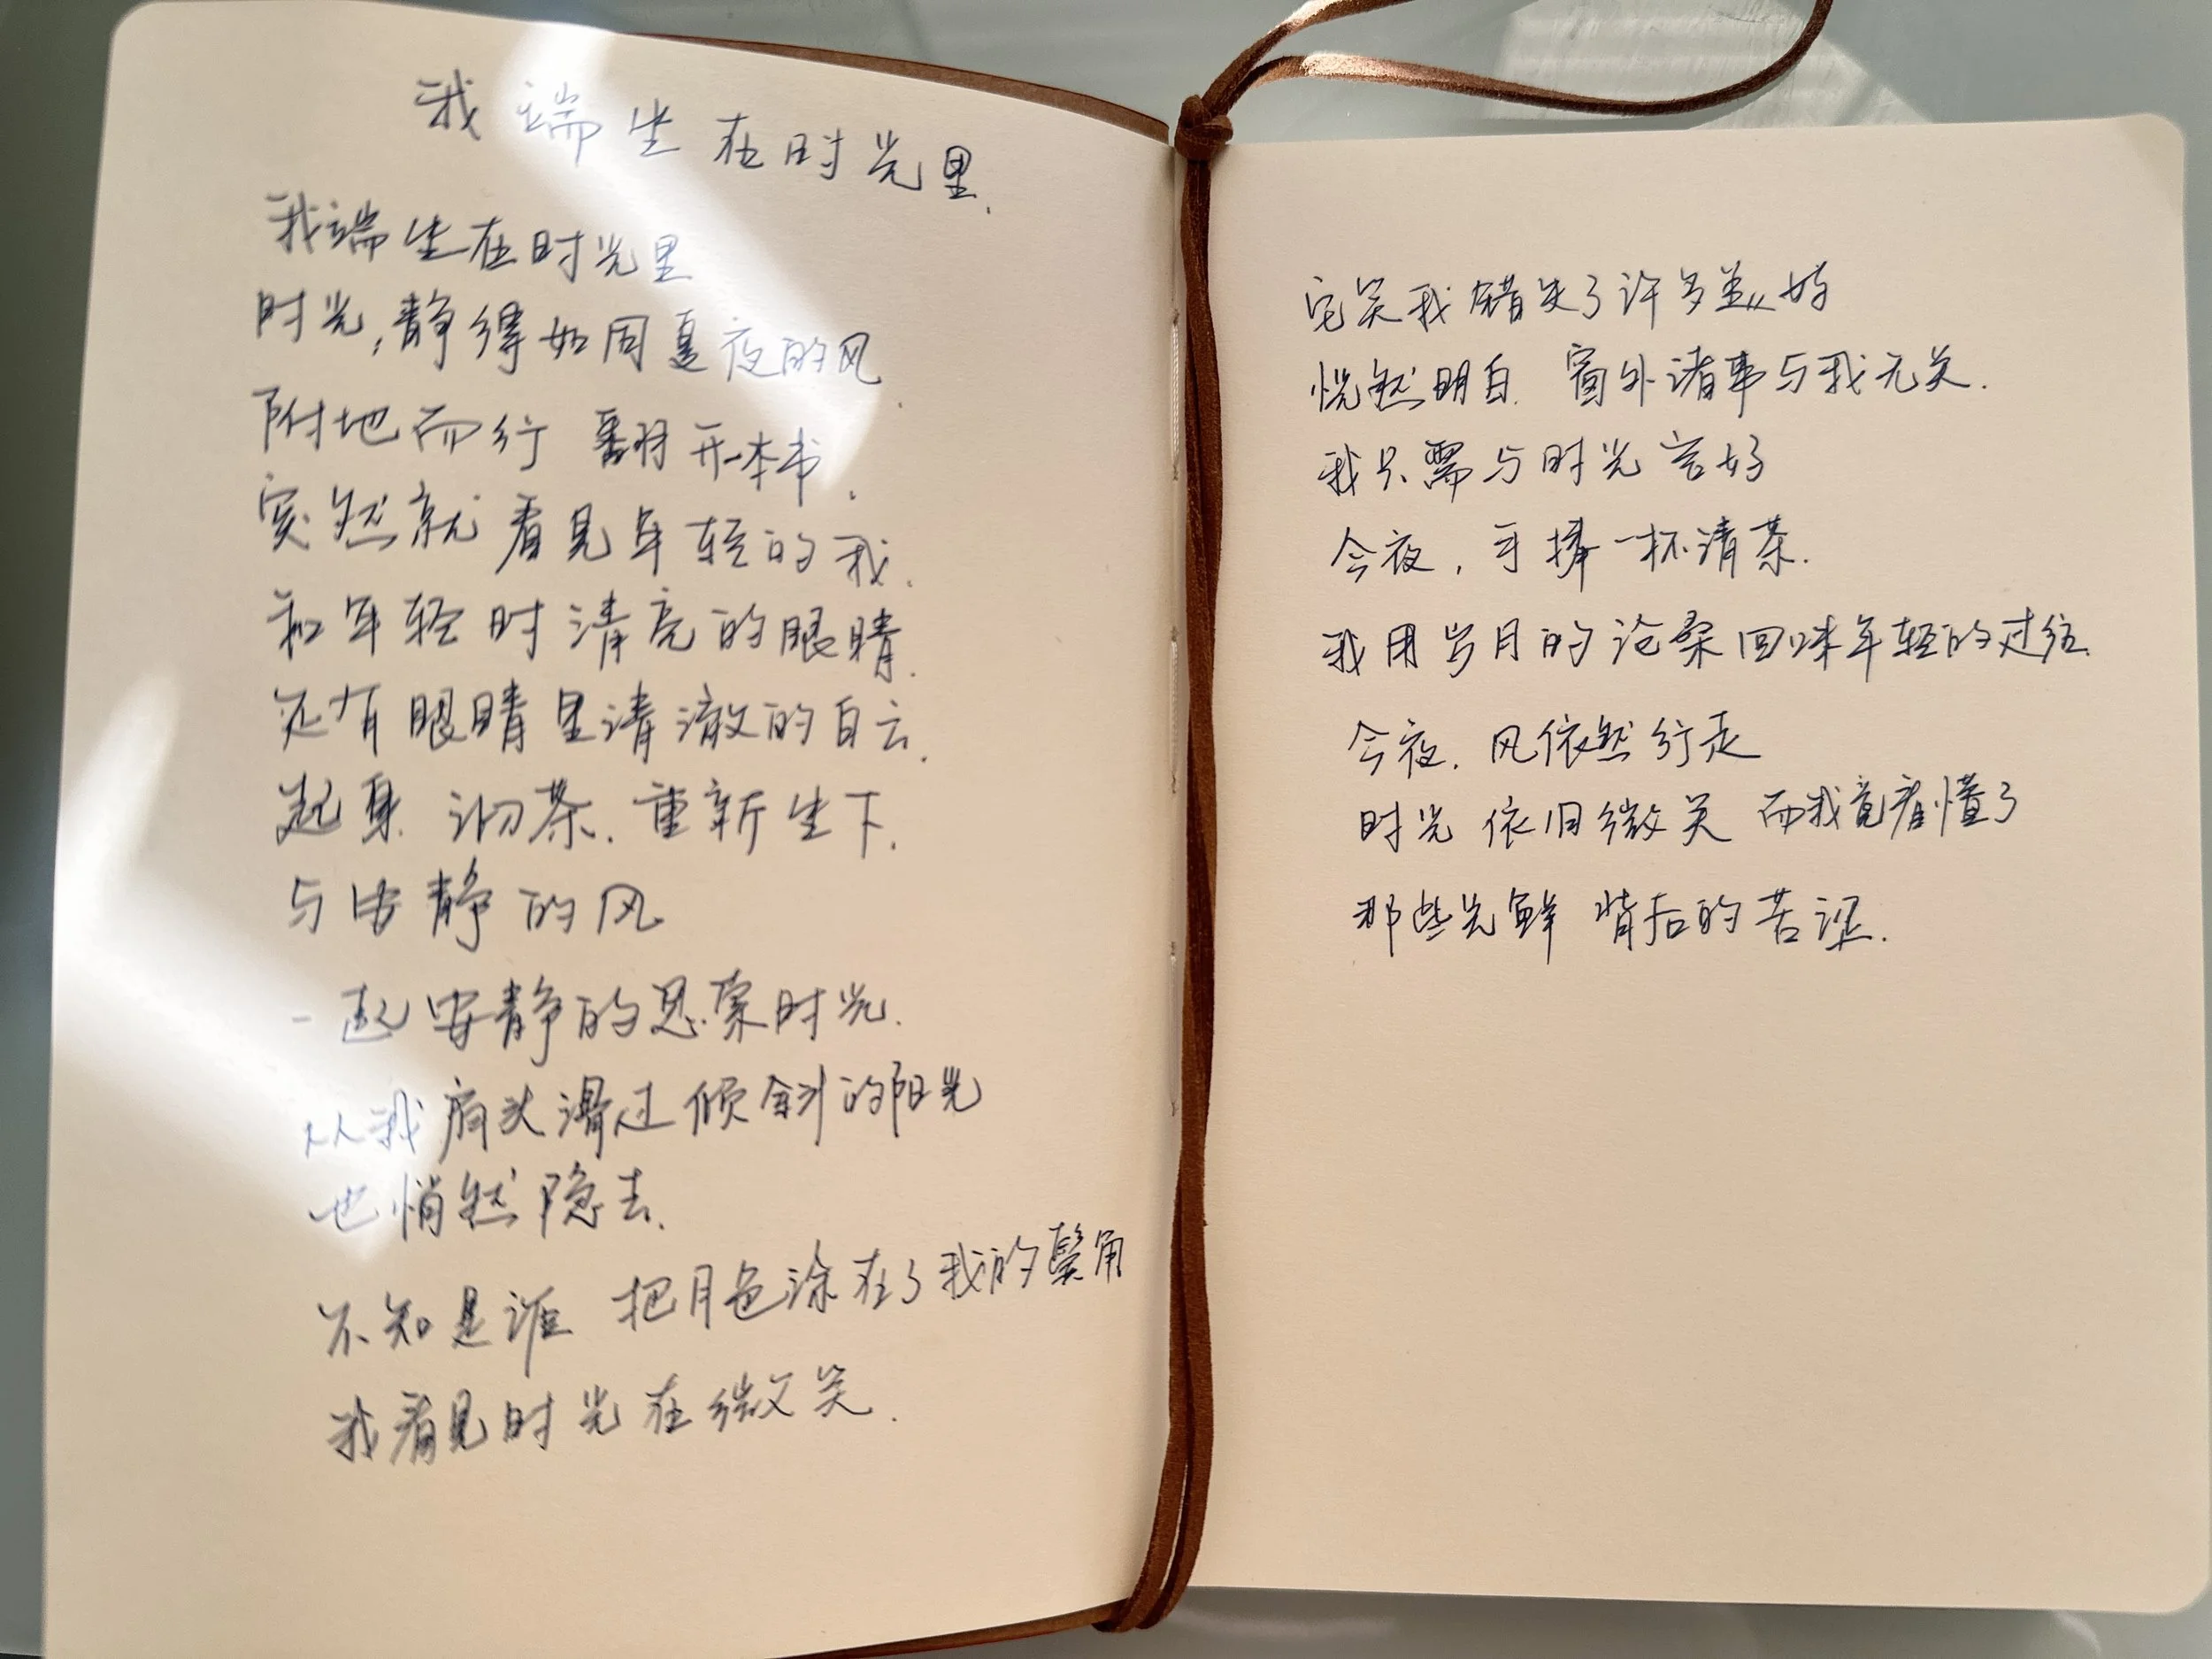 我端坐在时光里.
我端坐在时光里
时光,静得如同夏夜的风.
附地而行 翻开一本书.
突然就看见年轻的我.
和年轻时清亮的眼睛.
还有眼睛里清澈的白云.
起身 沏茶.重新坐下.
与安静的风
一起安静的思索时光.
从我肩头滑过倾斜的阳光
也悄然隐去.
不知是谁 把月色涂在了我的鬓角
我看见时光在微笑.
它笑我错失了许多美好
恍然明白.窗外诸事与我无关.
我只需与时光言好
今夜.手捧一杯清茶.
我用岁月的沧桑回味年轻的过往.
今夜.风依然行走
时光 依旧微笑 而我竟看懂了
那些光鲜 背后的苦涩.